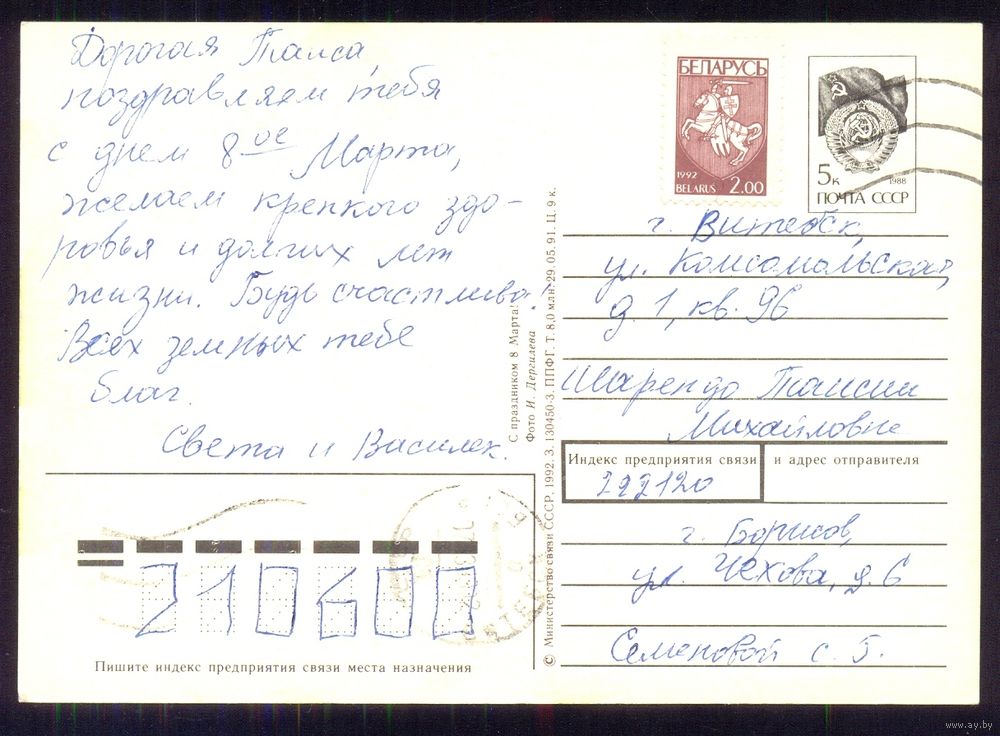 Дорогая Таиса,
поздравляем тебя
с днем 8ое Марта,
желаем крепкого здо-
ровья и долгих лет
жизни. Будь счастлива
Всех земных тебе
благ.
Света и Василек.
БЕЛАРУСЬ
1992
BELARUS 2.00
5к
1988
ПОЧТА СССР
г. Витебск,
ул. Комсомольская,
д. 1, кв. 96
Шарендо Таисии
Михайловне
Индекс предприятия связи и адрес отправителя
222120
г. Борисов,
ул. Чехова, д. 6
Семеновой С. Г.
С праздником 8 Марта!
Фото И. Дергилева
© Министерство связи СССР, 1992. З. 130450-3. ППФГ. Т. 8,0 млн. 29.05.91. Ц. 9 к.
210600
Пишите индекс предприятия связи места назначения
www.ay.by